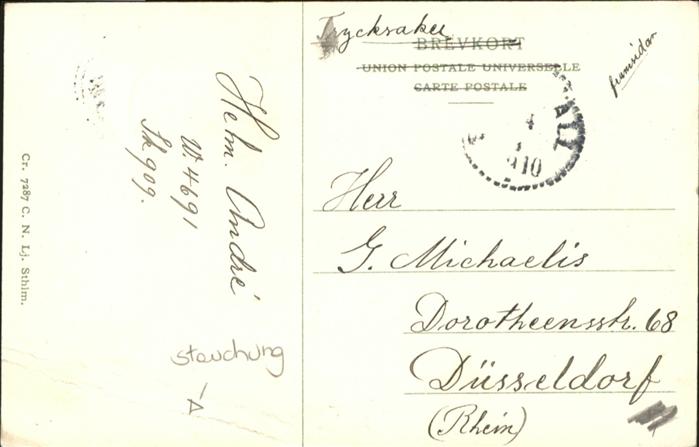 Trycksaker
BREVKORT
UNION POSTALE UNIVERSELLE
CARTE POSTALE
framsidan
4
1
910
Herr
G. Michaelis
Dorotheensstr. 68
Düsseldorf
(Rhein)
Helm. André
W. 4691
Sk 909.
Cr. 7287 C. N. Lj. Sthlm.
stauchung